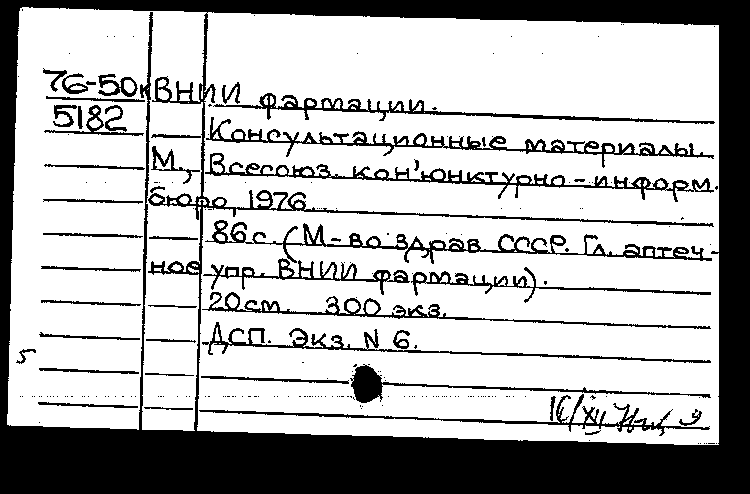 76-50к ВНИИ фармации.
5182
Консультационные материалы.
М., Всесоюз. кон'юнктурно-информ.
бюро, 1976.
86с. (М-во здрав СССР. Гл. аптеч-
ное упр. ВНИИ фармации).
20см. 300 экз.
ДСП. Экз. N 6.
5